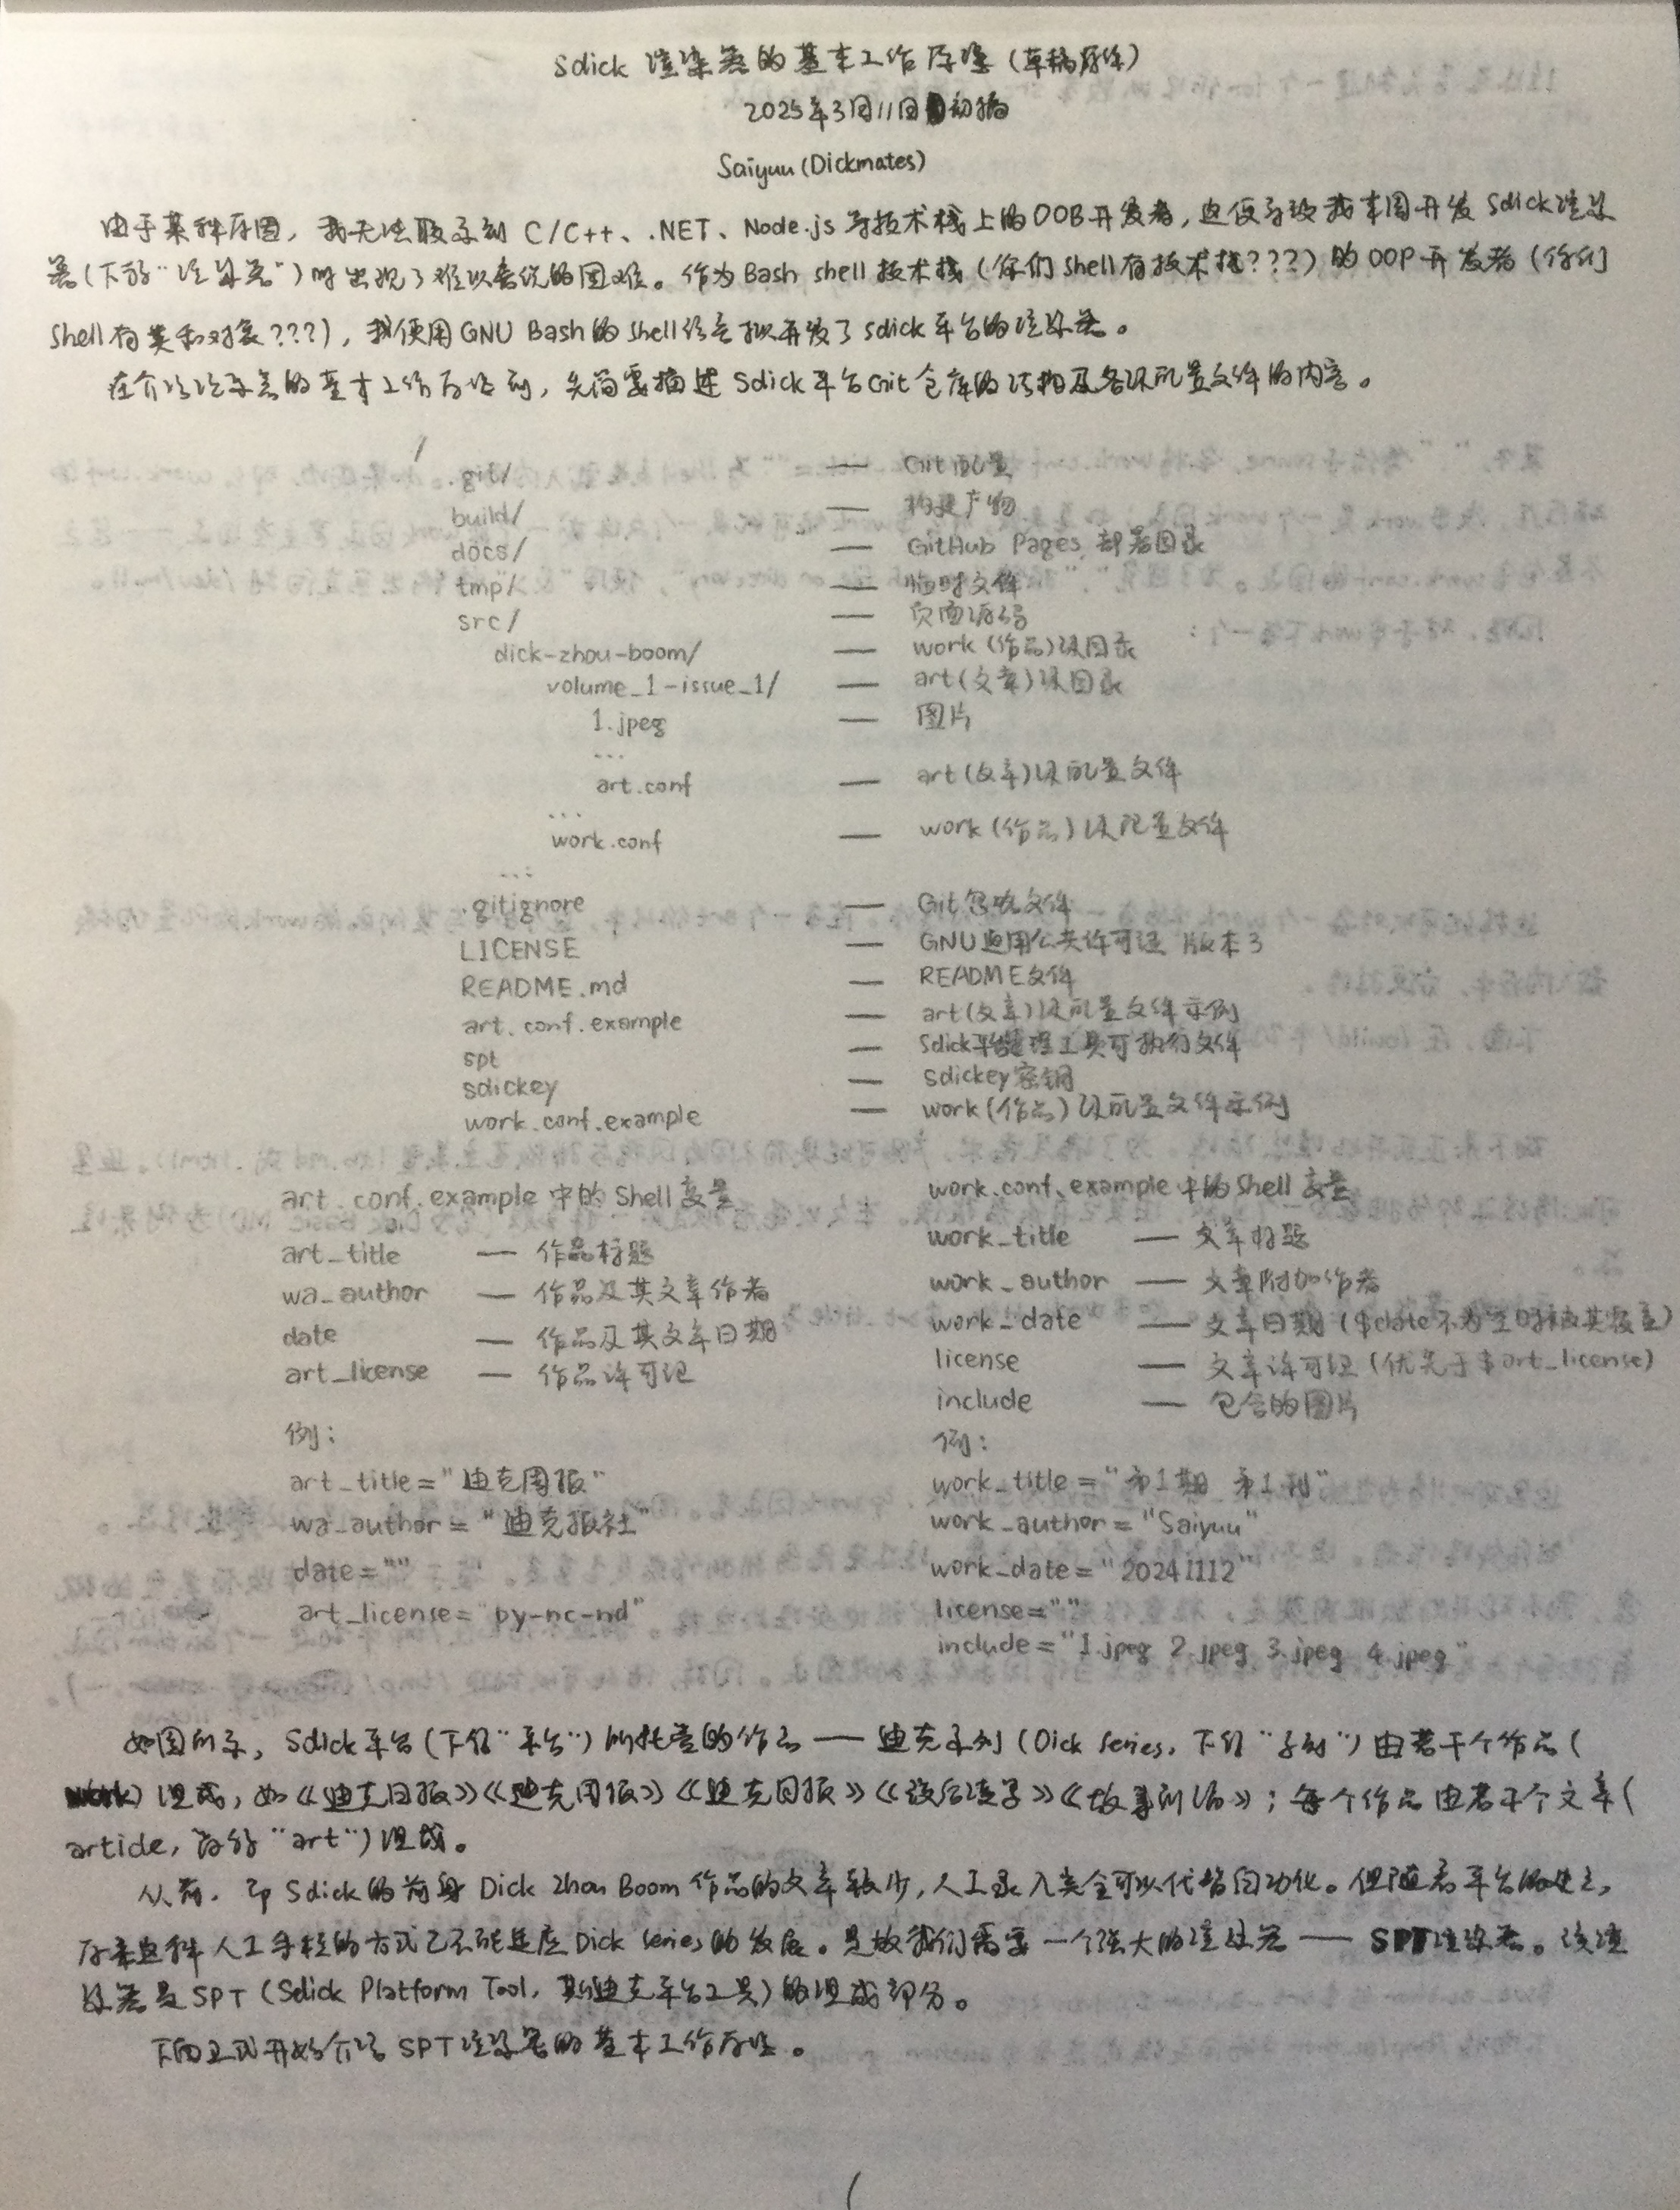 Sdick 渲染器的基本工作原理（草稿原件）
2025年3月11日 初稿
Saiyuu (Dickmates)
由于某种原因，我无法联系到 C/C++、.NET、Node.js 等技术栈上的OOB开发者，这便导致我在开发 Sdick渲染
器（下称“渲染器”）时出现了难以言说的困难。作为Bash shell 技术栈（你们 shell有技术栈???）的 OOP 开发者（你们
shell有类和对象???），我使用GNU Bash的shell语言开发了sdick平台的渲染器。
在介绍渲染器的基本工作原理前，先需要描述 Sdick 平台Git仓库的结构及各级配置文件的内容。
/
.git/ — Git配置
build/ — 构建产物
docs/ — GitHub Pages 部署目录
tmp/ — 临时文件
src/ — 页面源码
dick-zhou-boom/ — work（作品）级目录
volume_1-issue_1/ — art（文章）级目录
1.jpeg — 图片
...
art.conf — art（文章）级配置文件
...
work.conf — work（作品）级配置文件
...
.gitignore — Git忽略文件
LICENSE — GNU通用公共许可证 版本3
README.md — README文件
art.conf.example — art（文章）级配置文件示例
spt — Sdick平台管理工具可执行文件
sdickey — sdickey密钥
work.conf.example — work（作品）级配置文件示例
art.conf.example 中的 Shell 变量
art_title — 作品标题
wa_author — 作品及其文章作者
date — 作品及其文章日期
art_license — 作品许可证
例：
art_title="迪克周报"
wa_author="迪克报社"
date=""
art_license="by-nc-nd"
work.conf.example 中的 Shell 变量
work_title — 文章标题
work_author — 文章附加作者
work_date — 文章日期（$date不为空时被其覆盖）
license — 文章许可证（优先于$art_license）
include — 包含的图片
例：
work_title="第1期 第1刊"
work_author="Saiyuu"
work_date="20241112"
license=""
include="1.jpeg 2.jpeg 3.jpeg 4.jpeg"
如图所示，Sdick平台（下称“平台”）所托管的作品——迪克系列（Dick series，下称“系列”）由若干个作品（
work）组成，如《迪克日报》《迪克周报》《迪克月报》《》《故事》；每个作品由若干个文章（
article，简称“art”）组成。
从前，即 Sdick的前身 Dick Zhou Boom 作品的文章较少，人工录入完全可以代替自动化。但随着平台的建立，
原来这种人工手段的方式已不能适应Dick series的发展。是故我们需要一个强大的渲染器——SPT渲染器。该渲
染器是SPT（Sdick Platform Tool，斯迪克平台工具）的组成部分。
下面正式开始介绍 SPT渲染器的基本工作原理。